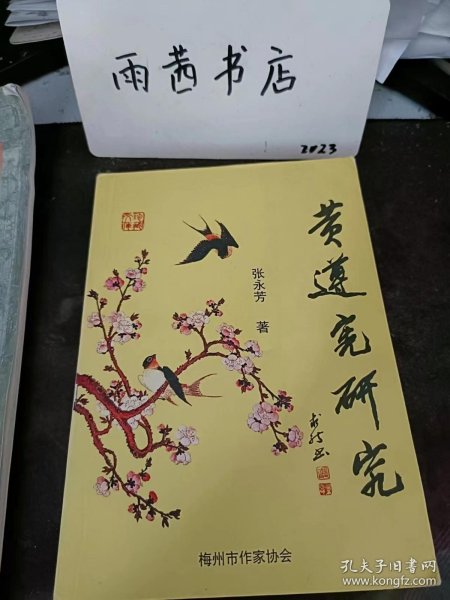 雨茜书店
2023
黄遵宪研究
张永芳 著
梅州市作家协会
孔夫子旧书网
www.kongfz.com